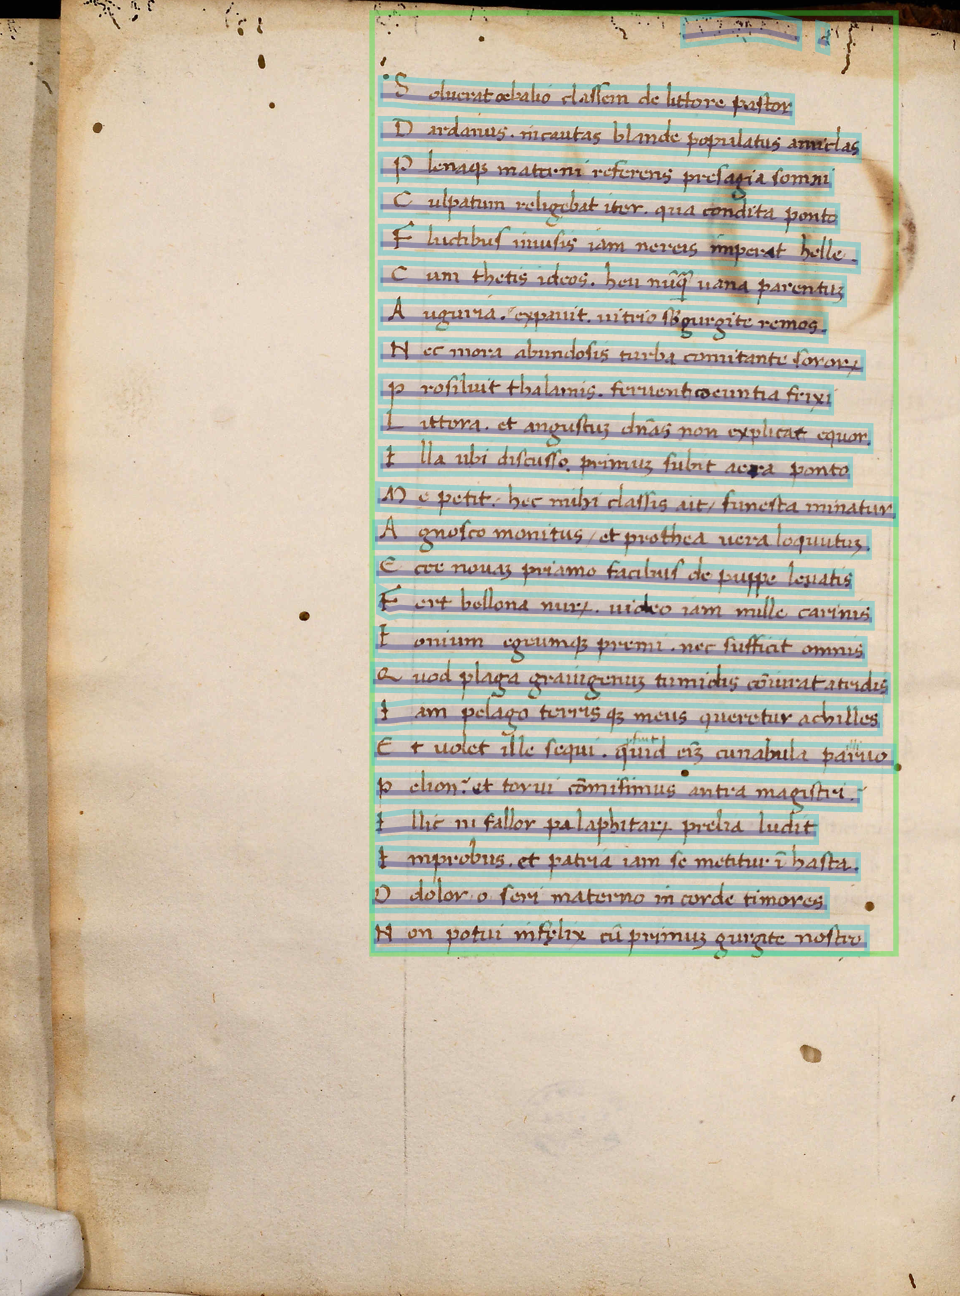 S oluerat œbalio classem de littore pastor
D ardanus . incautas blande populatus amiclas
P lenaqȝ materni referens presagia somni
C ulpatum religebat iter . qua condita ponto
F luctibus inuisis iam nereis imperat helle .
C um thetis ideos . heu nūqꝫ uana parentuȝ
A uguria . expauit . uitrio sб gurgite remos .
N ec mora abundosis turba comitante sororꝝ
P rosiluit thalamis . feruent coeuntia frixi
L ittora . et angustuȝ dn̄as non explicat equor .
I lla ubi discusso . primuȝ subit aera ponto
M e petit . hec mihi classis ait / funesta minatur
A gnosco monitus / et prothea uera loquutuȝ .
E cce nouaȝ priamo facibus de puppe leuatis
F ert bellona nurꝝ . video iam mille carinis
I onium egeumqȝ premi . nec sufficit omnis
Q uod plaga graiugenuȝ tumidis cōiurat atridis
I am pelago terris qȝ meus queretur achilles
E t uolet ille sequi . quid eīȝ cunabula paruo
P elion ? et torui cōmisimus antra magistri .
I llic ni fallor pa laphitarꝝ prelia ludit
I mprobus . et patria iam se metitur ī hasta .
O dolor . o seri materno in corde timores
N on potui infelix cū primuȝ gurgite nostro